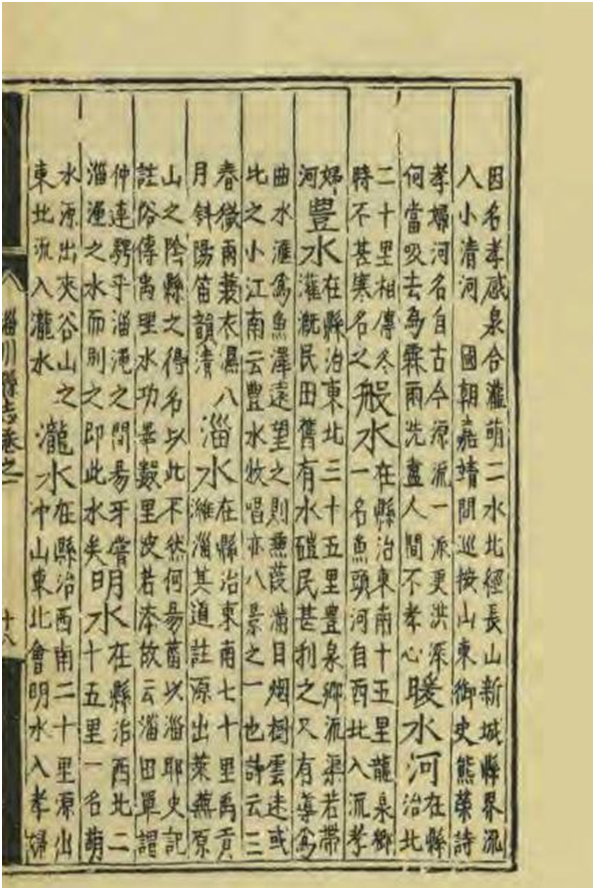 因名孝感泉合瀧萌二水北徑長山新城縣界流
入小清河 國朝嘉靖間巡按山東御史熊榮詩
孝婦河名自古今源流一派更洪深
何當吸去為霖雨洗盡人間不孝心
暖水河
在縣
治北
二十里相傳冬
時不甚寒名之
般水
在縣治東南十五里龍泉鄉
一名魚頭河自西北入流孝
婦
河
豐水
在縣治東北三十五里豊泉鄉流渠若帶
灌漑民田舊有水磑民甚利之又有導爲
曲水滙爲魚澤遠望之則蒹葭滿目烟樹雲迷或
比之小江南云豊水牧唱亦八景之一也詩云三
春微雨蓑衣濕八
月斜陽笛韻清
淄水
在縣治東南七十里禹貢
濰淄其道註源出萊蕪原
山之陰縣之得名以此不然何昜舊以淄耶史記
註俗傳禹理水功畢數里波若漆故云淄田單謂
仲連騁乎淄澠之間昜牙嘗
淄澠之水而別之即此水矣
明水
在縣治西北二
十五里一名萌
水源出夾谷山之
東北流入瀧水
瀧水
在縣治西南二十里源出
冲山東北會明水入孝婦
淄川縣志卷之一
十八